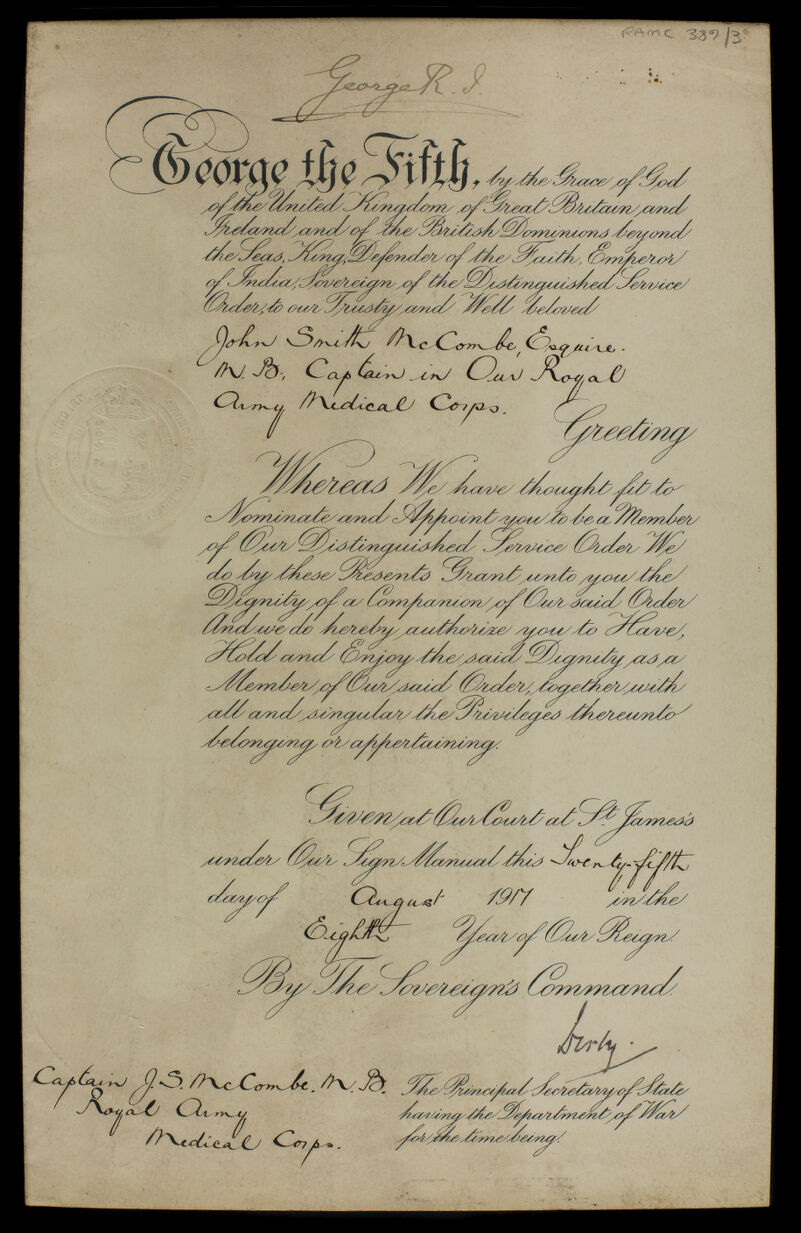 RAMC 389/3
George R. I.
George the Fifth, by the Grace of God
of the United Kingdom of Great Britain and
Ireland and of the British Dominions beyond
the Seas, King, Defender of the Faith, Emperor
of India, Sovereign of the Distinguished Service
Order, to our Trusty and Well beloved
John Smith McCombe, Esquire.
M.B., Captain in Our Royal
Army Medical Corps.
Greeting
Whereas We have thought fit to
Nominate and Appoint you to be a Member
of Our Distinguished Service Order We
do by these Presents Grant unto you the
Dignity of a Companion of Our said Order
And we do hereby authorize you to Have,
Hold and Enjoy the said Dignity as a
Member of Our said Order, together with
all and singular the Privileges thereunto
belonging or appertaining.
Given at Our Court at St. James's
under Our Sign Manual this Twenty-fifth
day of August 1917 in the
Eighth Year of Our Reign.
By The Sovereign's Command.
Derby.
Captain J.S. McCombe. M.B.
Royal Army
Medical Corps.
The Principal Secretary of State
having the Department of War
for the time being.